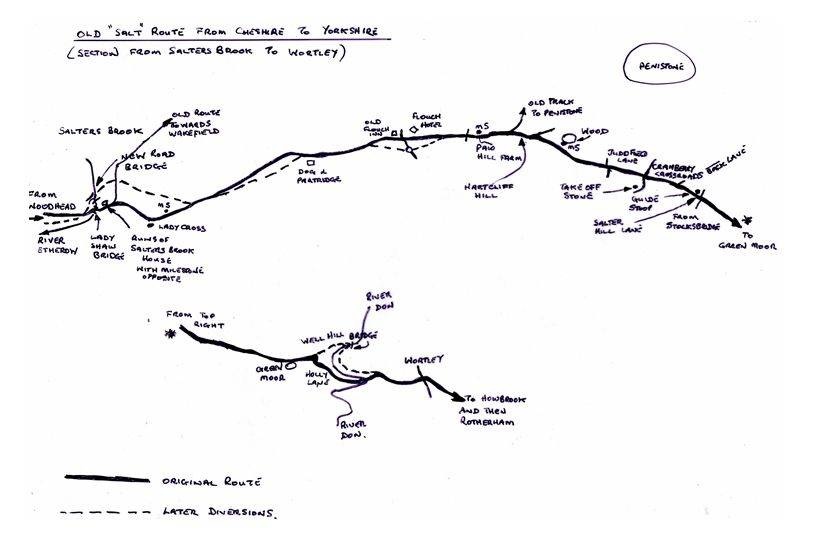 OLD "SALT" ROUTE FROM CHESHIRE TO YORKSHIRE
(SECTION FROM SALTERS BROOK TO WORTLEY)
PENISTONE
OLD ROUTE
TOWARDS
WAKEFIELD
SALTERS BROOK
NEW ROAD
BRIDGE
FROM
WOODHEAD
RIVER
ETHEROW
LADY
SHAW
BRIDGE
RUINS OF
SALTERS BROOK
HOUSE
WITH MILESTONE
OPPOSITE
MS
LADYCROSS
DOG &
PARTRIDGE
OLD
FLOUCH
INN
FLOUCH
HOTEL
MS
PAW
HILL FARM
HARTCLIFF
HILL
OLD TRACK
TO PENISTONE
WOOD
MS
JUDD FIELD
LANE
TAKE OFF
STONE
CRANBERRY
CROSSROADS
BACK LANE
GUIDE
STOOP
SALTER
HILL LANE
FROM
STOCKSBRIDGE
*
TO
GREEN MOOR
FROM TOP
RIGHT
*
GREEN
MOOR
WELL HILL BRIDGE
HOLLY
LANE
RIVER
DON
RIVER
DON.
WORTLEY
TO HOWBROOK
AND THEN
ROTHERHAM
ORIGINAL ROUTE
LATER DIVERSIONS.